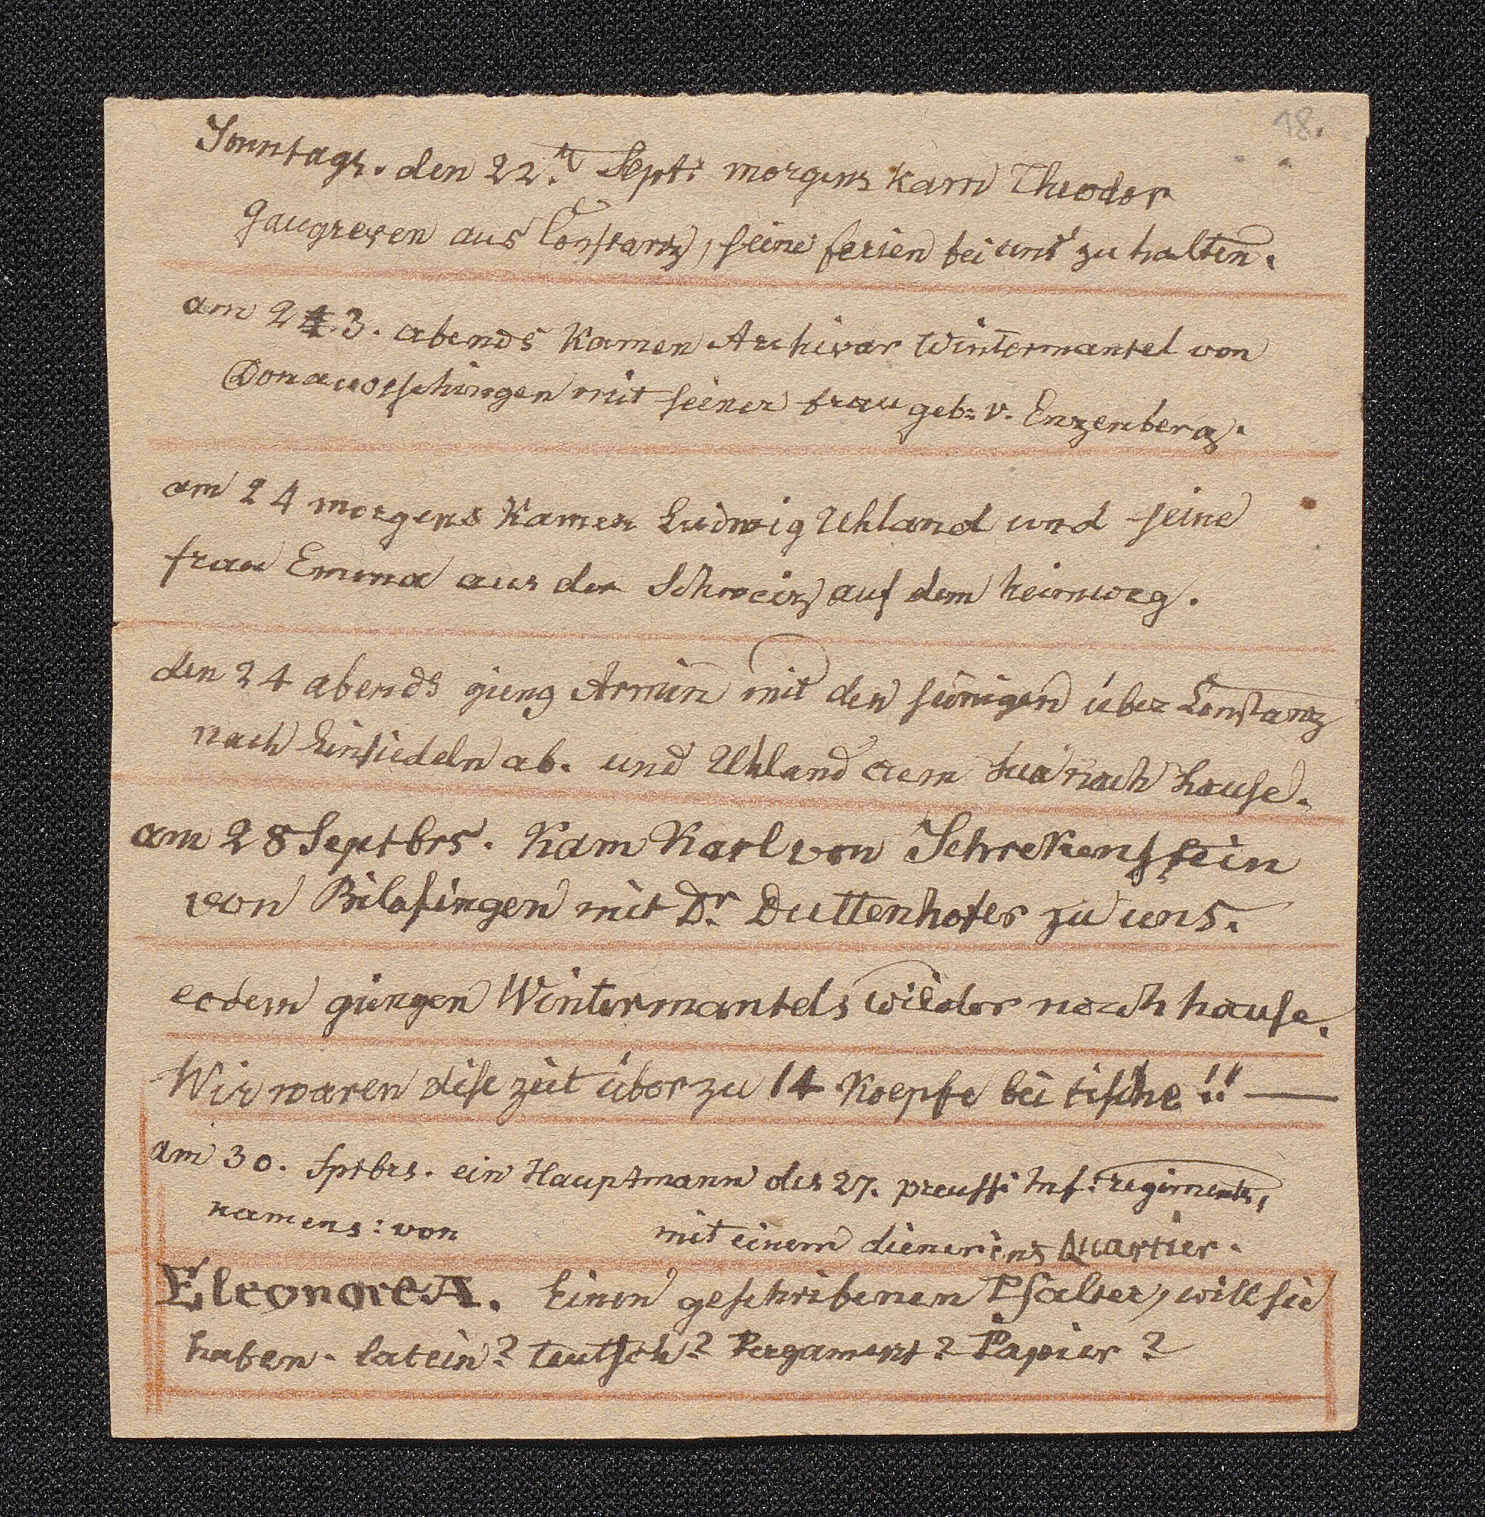 18.
Sonntags. den 22.t Sept: morgens kam Theodor
Gaugreven aus Constanz, seine ferien bei uns zu halten.
am 23. abends kamen Archivar Wintermantel von
Donauoeschingen mit seiner frau geb: v. Enzenberg.
am 24 morgens kamen Ludwig Uhland und seine
frau Emma aus der Schweiz auf dem heimweg.
den 24 abends gieng Armin mit den seinigen über Constanz
nach Einsiedeln ab. und Uhland cum sua nach hause.
am 28 Septbrs. kam Karl von Schrekenstein
von Bilafingen mit Dr. Duttenhofer zu uns.
eodem giengen Wintermantels wieder nach hause.
Wir waren dise zeit über zu 14 Koepfe bei tische!! —
am 30. Sptbrs. ein Hauptmann des 27. preuss: Inf: regiments,
namens: von mit einem diener ins Quartier.
Eleonore A. Einen geschribenen Psalter, will sie
haben. latein? teutsch? Pergament? Papier?